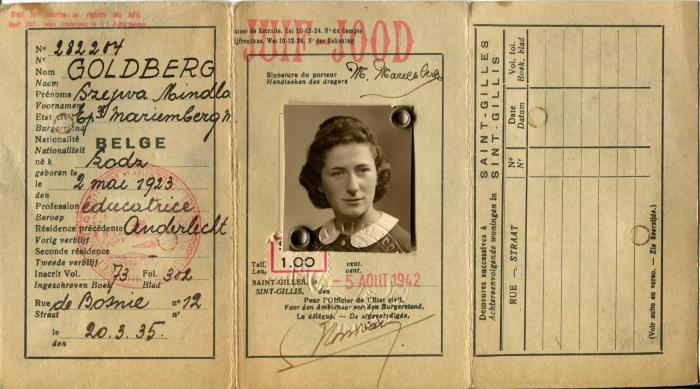 JUIF - JOOD
Nº 232204
Nr
Nom GOLDBERG
Naam
Prénoms Szejwa Mindla
Voornamen
Etat civil Ep. Mariemberg
Burgerstand
Nationalité BELGE
Nationaliteit
né à Lodz
geboren te
le 2 mai 1923
den
Profession éducatrice
Beroep
Résidence précédente Anderlecht
Vorig verblijf
Seconde résidence
Tweede verblijf
Inscrit Vol. 73 Fol. 302
Ingeschreven Boek Blad
Rue de Bosnie nº 12
Straat nr
le 20.3.35.
den
Caisse de Retraite. Loi 10-12-24. Nº du Compte
Lijfrentkas. Wet 10-12-24. Nr der Rekening
Signature du porteur
Handteeken des dragers
Taxe 1.00 cent.
cent.
SAINT-GILLES, le -5 AOUT 1942
SINT-GILLIS, den
Pour l'Officier de l'Etat civil,
Voor den Ambtenaar van den Burgerstand,
Le délégué. — De afgevaardigde,
Demeures successives à SAINT-GILLES
Achtereenvolgende woningen in SINT-GILLIS
RUE — STRAAT
Nº
Nr
Date
Datum
Vol. fol.
Boek. blad
(Voir suite au verso. — Zie keerzijde.)